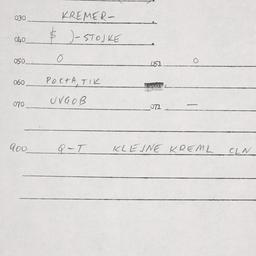 030 KREMER-
040 $ )-STOJKE
050 0 051 0
060 POCTA, TIK
070 UVGOB 071 —
900 Q-T KLEJNE KREML CLN